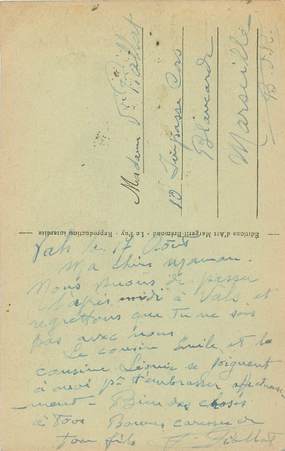 Madame Vve
10 Impasse Cas
Blancarde
Marseille
B. d. R.
Editions d'Art Margerit-Brémond - Le Puy - Reproduction interdite
Vals le 17 Août
Ma chère maman.
Nous avons de passer
l'après midi à Vals, et
regrettons que tu ne sois
pas avec nous.
Le cousin Emile et la
cousine Léonie se joignent
à moi pr t'embrasser affectueuse
ment - Bien des choses
à tous Bonnes caresses de
ton fils